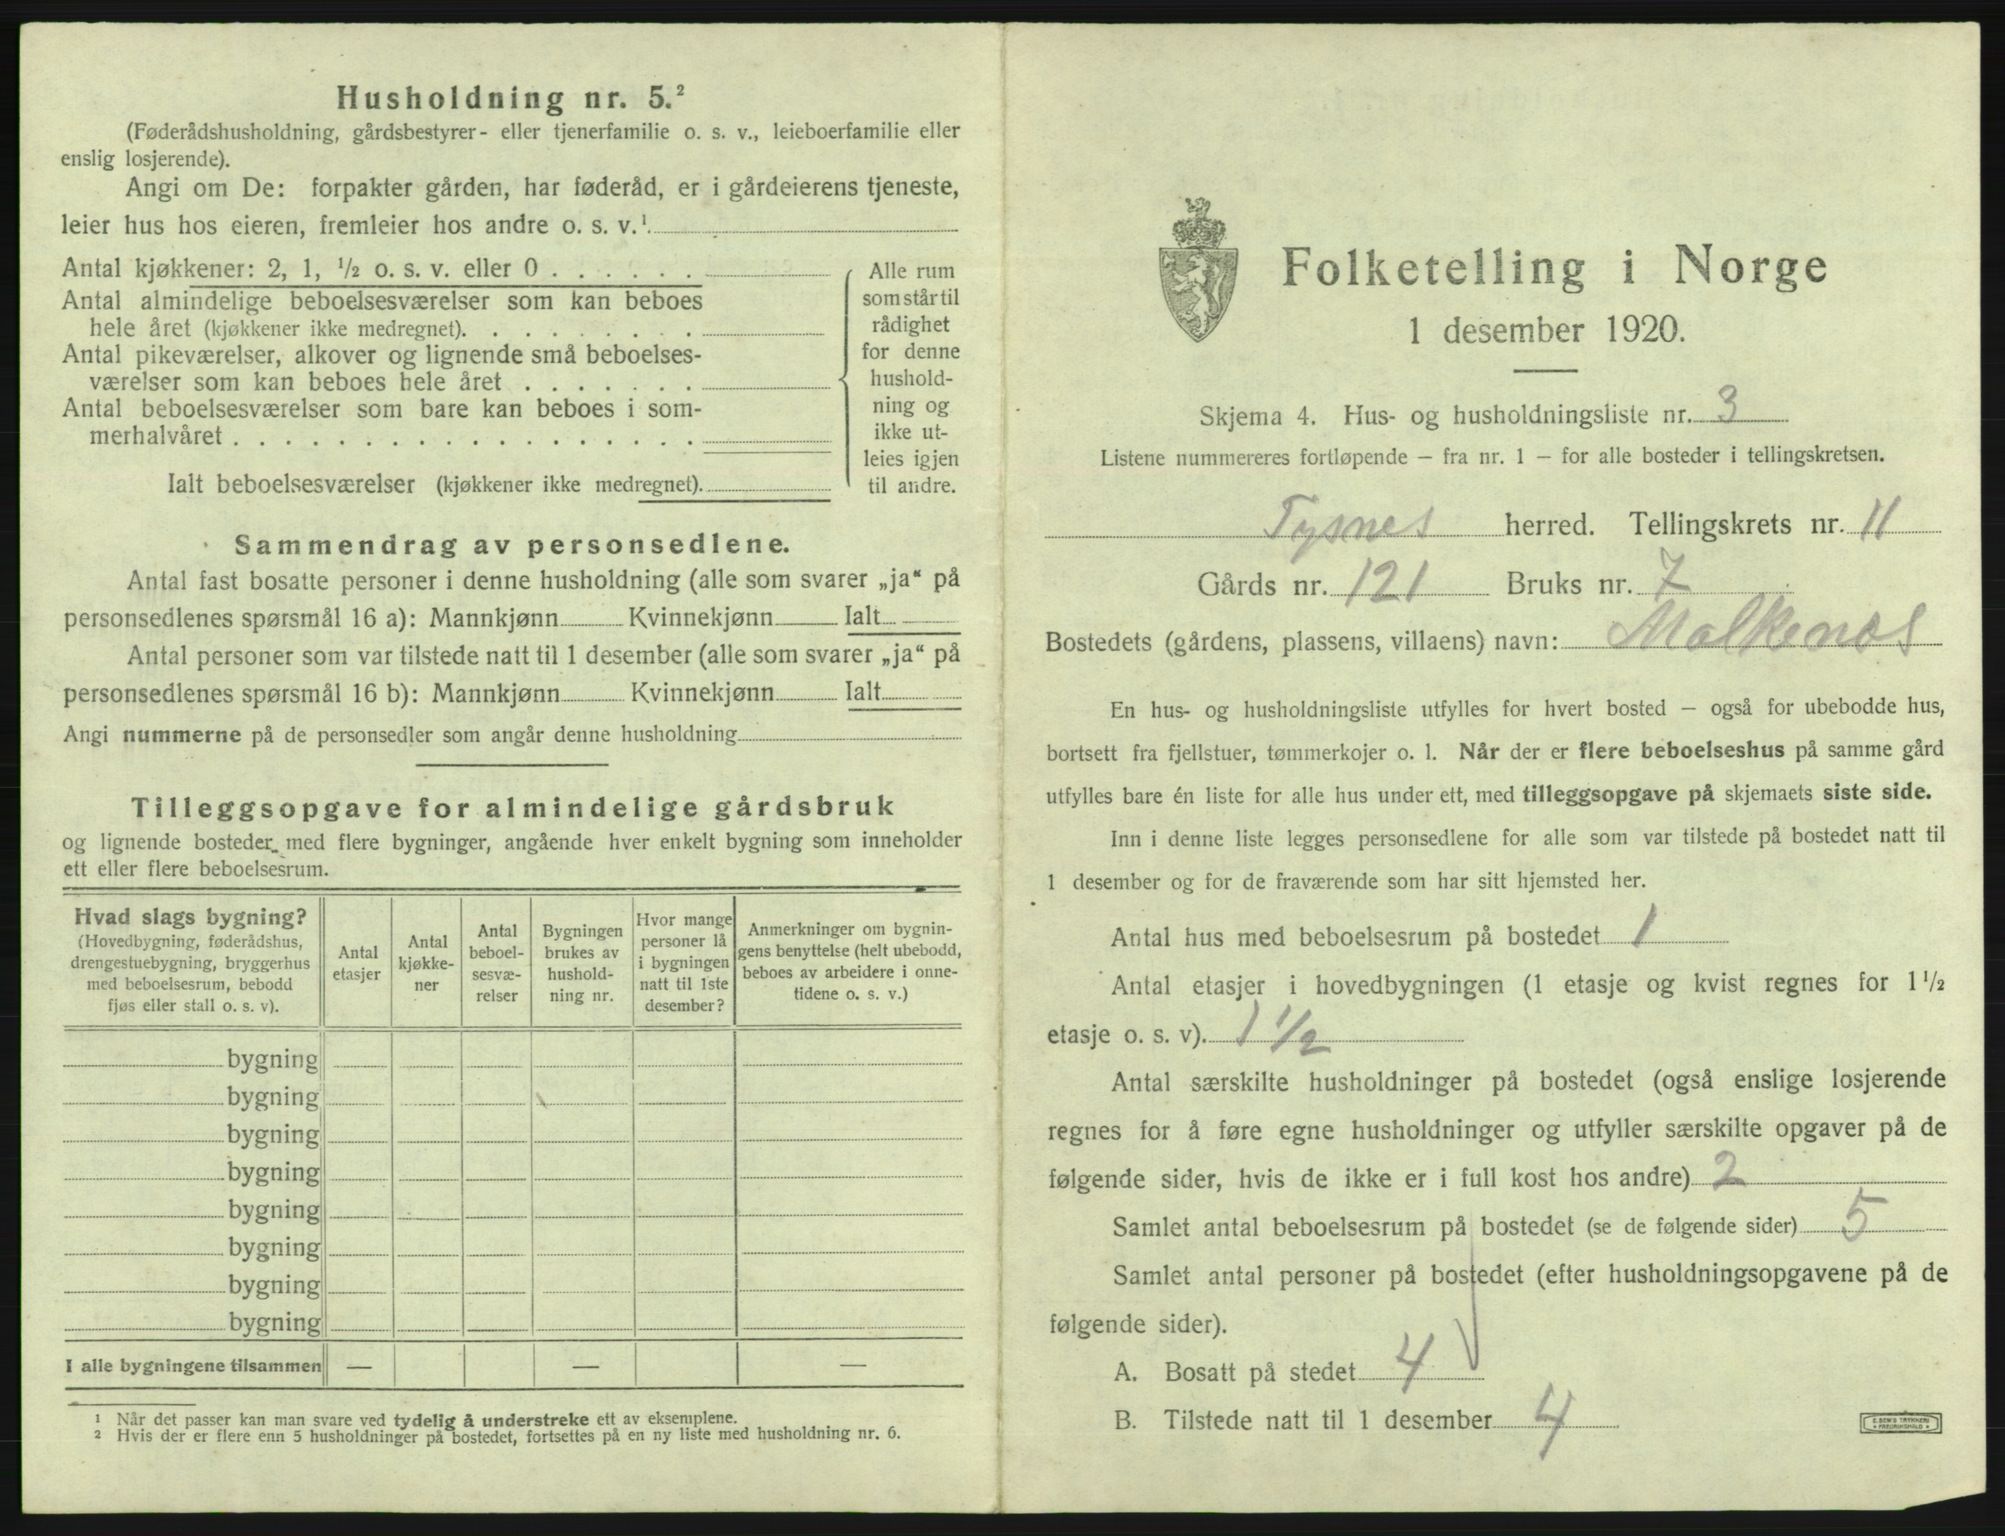 Husholdning nr. 5.²
(Føderådshusholdning, gårdsbestyrer- eller tjenerfamilie o. s. v., leieboerfamilie eller
enslig losjerende).
Angi om De: forpakter gården, har føderåd, er i gårdeierens tjeneste,
leier hus hos eieren, fremleier hos andre o. s. v.¹
Antal kjøkkener: 2, 1, ½ o. s. v. eller 0 . . . . . .
Antal almindelige beboelsesværelser som kan beboes
hele året (kjøkkener ikke medregnet). . . . . . . . .
Antal pikeværelser, alkover og lignende små beboelses-
værelser som kan beboes hele året . . . . . . .
Antal beboelsesværelser som bare kan beboes i som-
merhalvåret . . . . . . . . . . . . . . . . . .
Ialt beboelsesværelser (kjøkkener ikke medregnet).
Alle rum
som står til
rådighet
for denne
hushold-
ning og
ikke ut-
leies igjen
til andre.
Sammendrag av personsedlene.
Antal fast bosatte personer i denne husholdning (alle som svarer „ja“ på
personsedlenes spørsmål 16 a): Mannkjønn Kvinnekjønn Ialt
Antal personer som var tilstede natt til 1 desember (alle som svarer „ja“ på
personsedlenes spørsmål 16 b): Mannkjønn Kvinnekjønn Ialt
Angi nummerne på de personsedler som angår denne husholdning
Tilleggsopgave for almindelige gårdsbruk
og lignende bosteder med flere bygninger, angående hver enkelt bygning som inneholder
ett eller flere beboelsesrum.
Hvad slags bygning?
(Hovedbygning, føderådshus,
drengestuebygning, bryggerhus
med beboelsesrum, bebodd
fjøs eller stall o. s. v).
Antal
etasjer
Antal
kjøkke-
ner
Antal
beboel-
sesvæ-
relser
Bygningen
brukes av
hushold-
ning nr.
Hvor mange
personer lå
i bygningen
natt til 1ste
desember?
Anmerkninger om bygnin-
gens benyttelse (helt ubebodd,
beboes av arbeidere i onne-
tidene o. s. v.)
bygning
bygning
bygning
bygning
bygning
bygning
bygning
bygning
I alle bygningene tilsammen — — —
¹ Når det passer kan man svare ved tydelig å understreke ett av eksemplene.
² Hvis der er flere enn 5 husholdninger på bostedet, fortsettes på en ny liste med husholdning nr. 6.
Folketelling i Norge
1 desember 1920.
Skjema 4. Hus- og husholdningsliste nr. 3
Listene nummereres fortløpende – fra nr. 1 – for alle bosteder i tellingskretsen.
Tysnes herred. Tellingskrets nr. 11
Gårds nr. 121 Bruks nr. 7
Bostedets (gårdens, plassens, villaens) navn: Malkenes
En hus- og husholdningsliste utfylles for hvert bosted – også for ubebodde hus,
bortsett fra fjellstuer, tømmerkojer o. l. Når der er flere beboelseshus på samme gård
utfylles bare én liste for alle hus under ett, med tilleggsopgave på skjemaets siste side.
Inn i denne liste legges personsedlene for alle som var tilstede på bostedet natt til
1 desember og for de fraværende som har sitt hjemsted her.
Antal hus med beboelsesrum på bostedet 1
Antal etasjer i hovedbygningen (1 etasje og kvist regnes for 1½
etasje o. s. v). 1 1/2
Antal særskilte husholdninger på bostedet (også enslige losjerende
regnes for å føre egne husholdninger og utfyller særskilte opgaver på de
følgende sider, hvis de ikke er i full kost hos andre) 2
Samlet antal beboelsesrum på bostedet (se de følgende sider) 5
Samlet antal personer på bostedet (efter husholdningsopgavene på de
følgende sider).
A. Bosatt på stedet 4
B. Tilstede natt til 1 desember 4